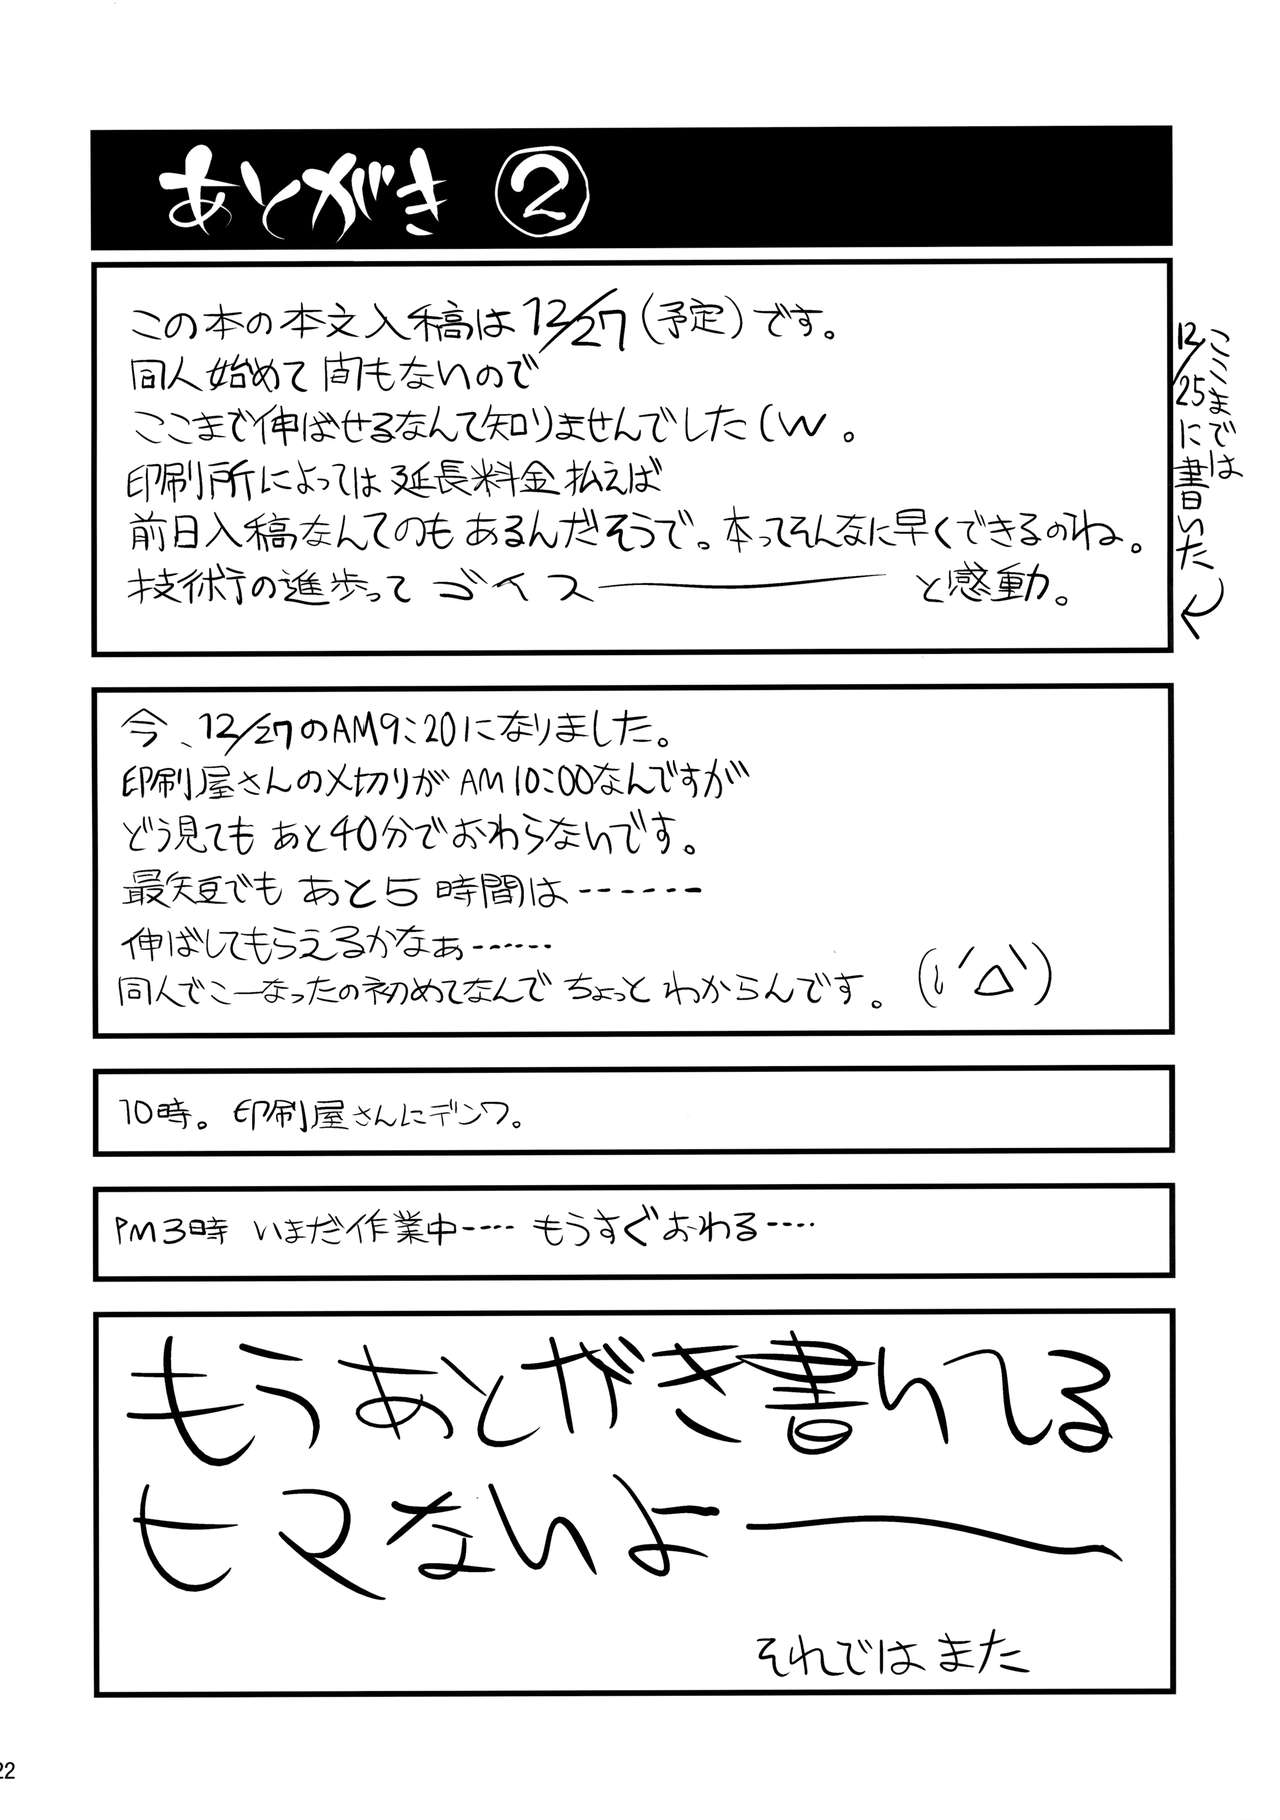 あとがき ②
この本の本文入稿は12/27(予定)です。
同人始めて間もないので
ここまで伸ばせるなんて知りませんでした(w。
印刷所によっては延長料金払えば
前日入稿なんてのもあるんだそうで。本ってそんなに早くできるのね。
技術庁の進歩って ゴイスーーーーー と感動。
ここまでは
12/25に書いた
今、12/27のAM9:20になりました。
印刷屋さんの〆切りがAM10:00なんですが
どう見てもあと40分でおわらないです。
最短でもあと5時間は……
伸ばしてもらえるかなぁ……
同人でこーなったの初めてなんでちょっとわからんです。(;´Д`)
10時。印刷屋さんにデンワ。
PM3時 いまだ作業中…… もうすぐおわる……
もうあとがき書いてる
ヒマないよーーーー
それではまた
22